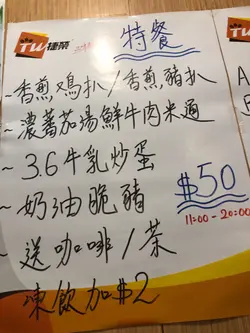 TW捷榮
特餐
~香煎鷄扒/香煎豬扒
~濃蕃茄湯鮮牛肉米通
~3.6牛乳炒蛋
~奶油脆豬
$50
11:00-20:00
送咖啡/茶
凍飲加$2